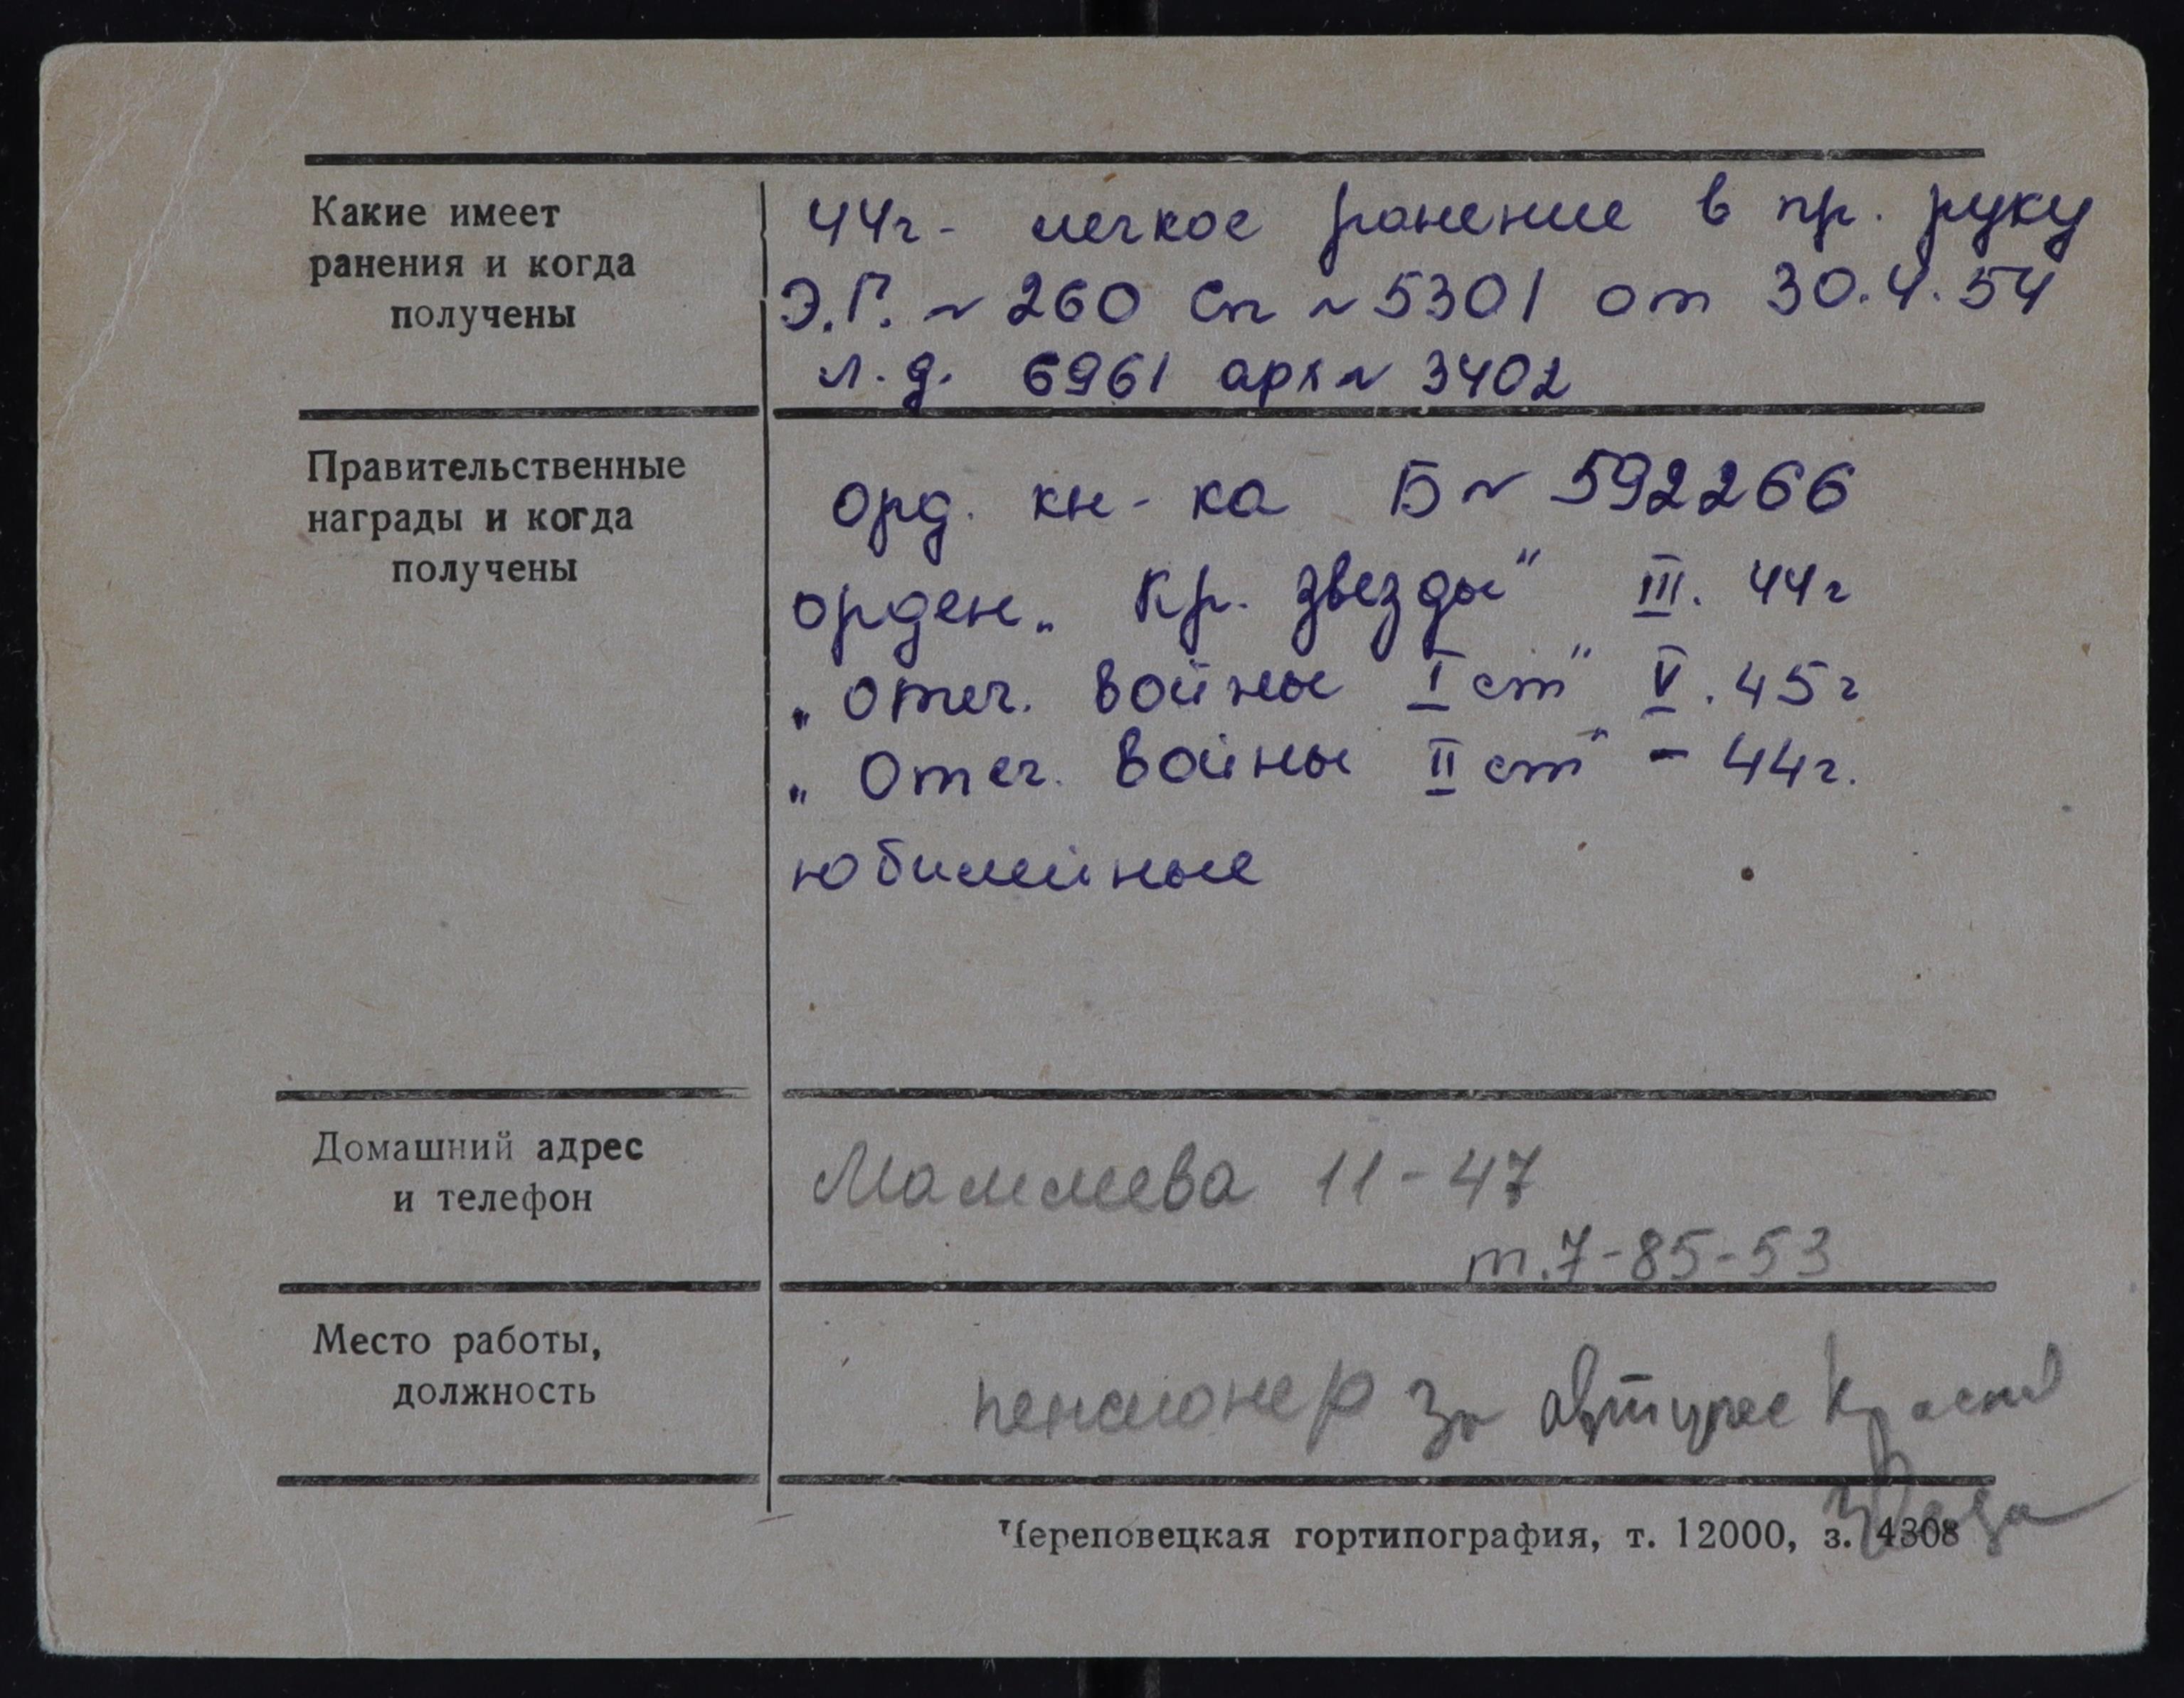 Какие имеет
ранения и когда
получены
44г- легкое ранение в пр. руку
Э.Г. ~ 260 Сп ~ 5301 от 30.4.54
л.д. 6961 арх ~ 3402
Правительственные
награды и когда
получены
орд. кн-ка Б ~ 592266
орден „Кр. звезды" III. 44г
„Отеч. войны I ст" V. 45г
„Отеч. войны II ст" - 44г.
юбилейные
Домашний адрес
и телефон
Мамлеева 11-47
т. 7-85-53
Место работы,
должность
пенсионер
Череповецкая гортипография, т. 12000, з. 4308